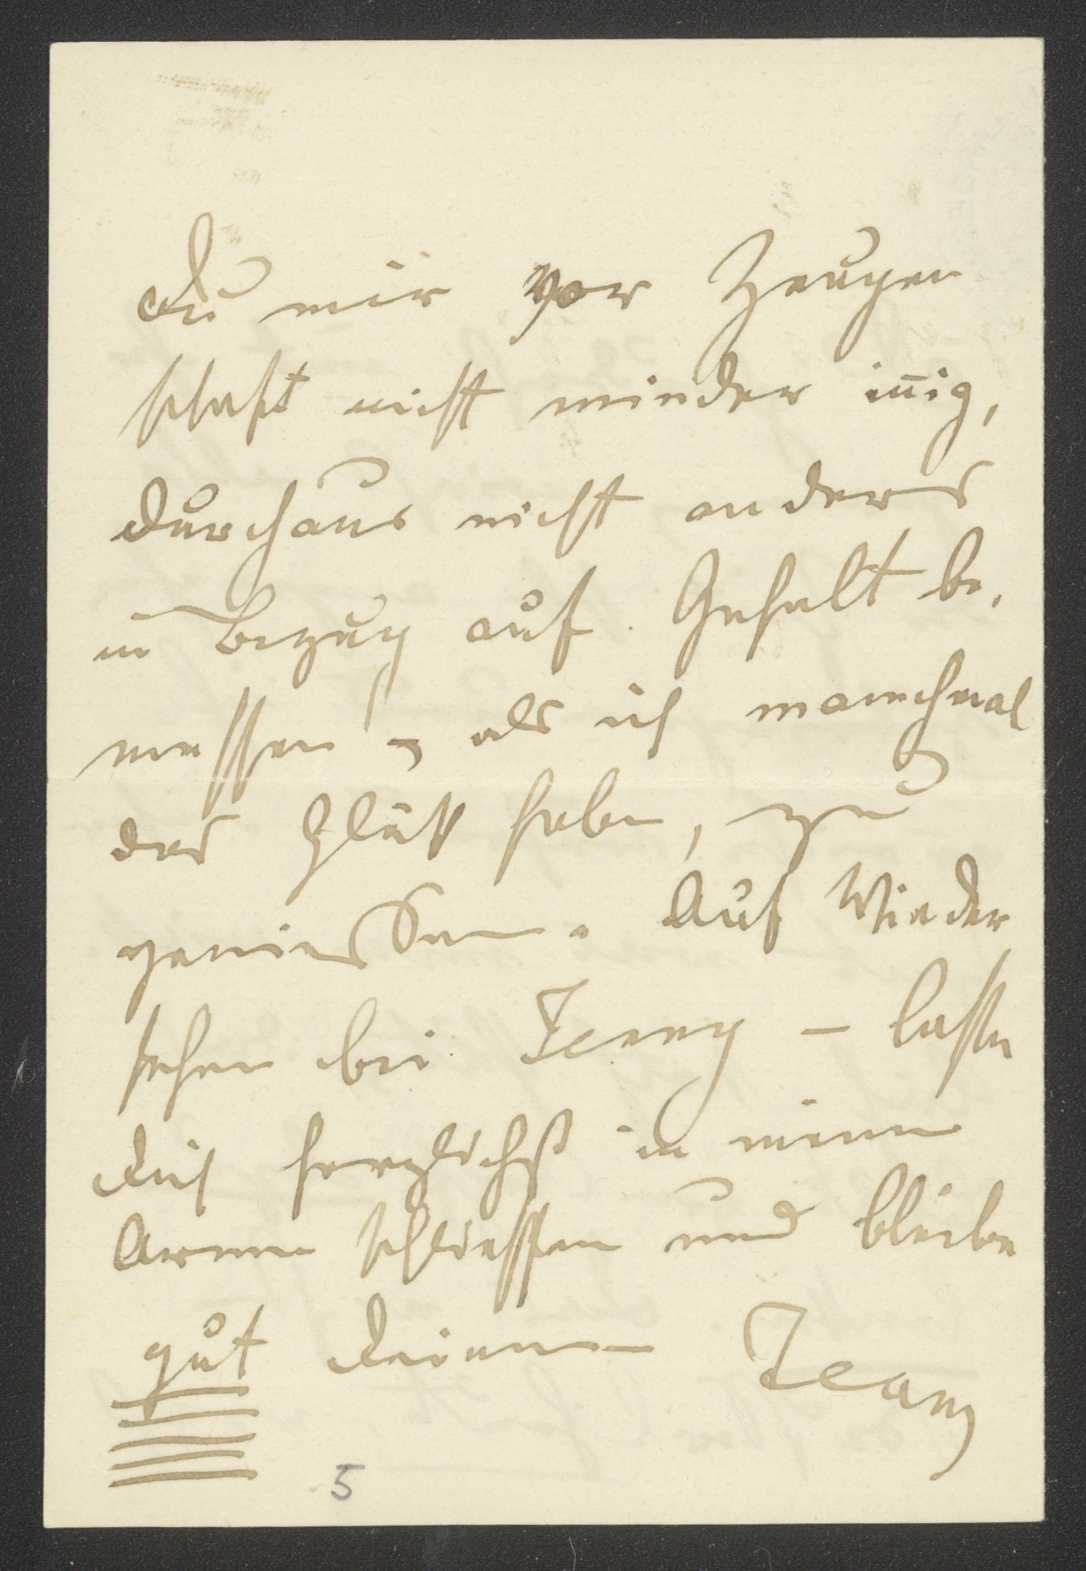 Du mir vor Zeugen
schaft nicht minder iñig,
durchaus nicht anders
in Bezug auf Gehalt be,
messen, als ich manchmal
das Glück habe, zu
geniessen. Auf Wieder
sehen bei Jenny – lasse
Dich herzlichst in meine
Arme schliessen und bleibe
gut Deinem Jean
5